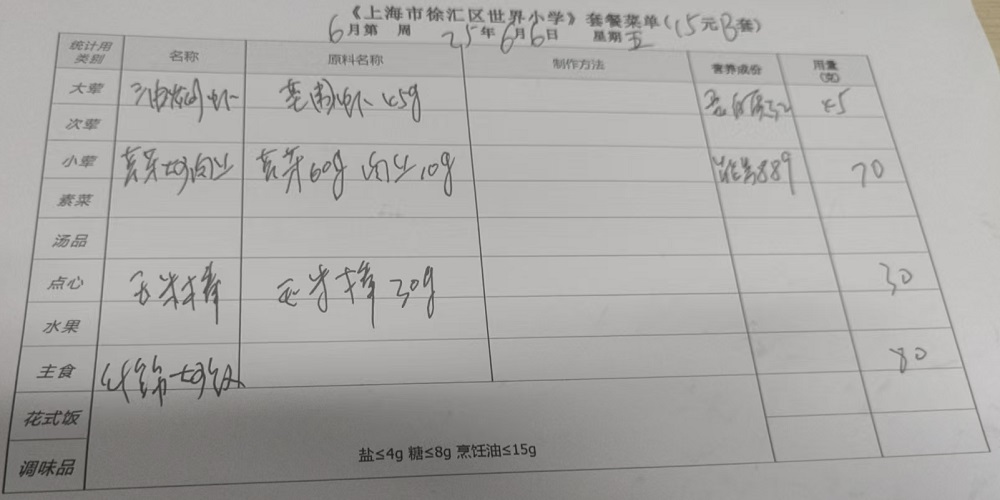 《上海市徐汇区世界小学》套餐菜单(15元B套)
6月第 周 25年6月6日 星期五
统计用类别 名称 原料名称 制作方法 营养成份 用量(克)
大荤 45g 45
次荤
小荤 60g 肉丝10g 能量889 70
素菜
汤品
点心 玉米棒 玉米棒30g 30
水果
主食 什锦炒饭 80
花式饭
调味品 盐≤4g 糖≤8g 烹饪油≤15g